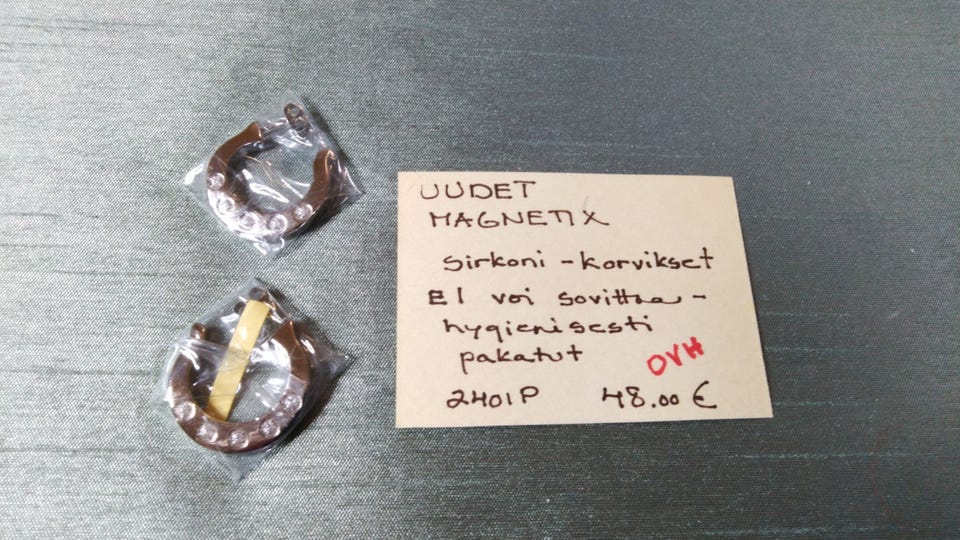 UUDET
MAGNETIX
sirkoni - korvikset
EI voi sovittaa -
hygienisesti
pakatut
OVH
2401P 48.00 €